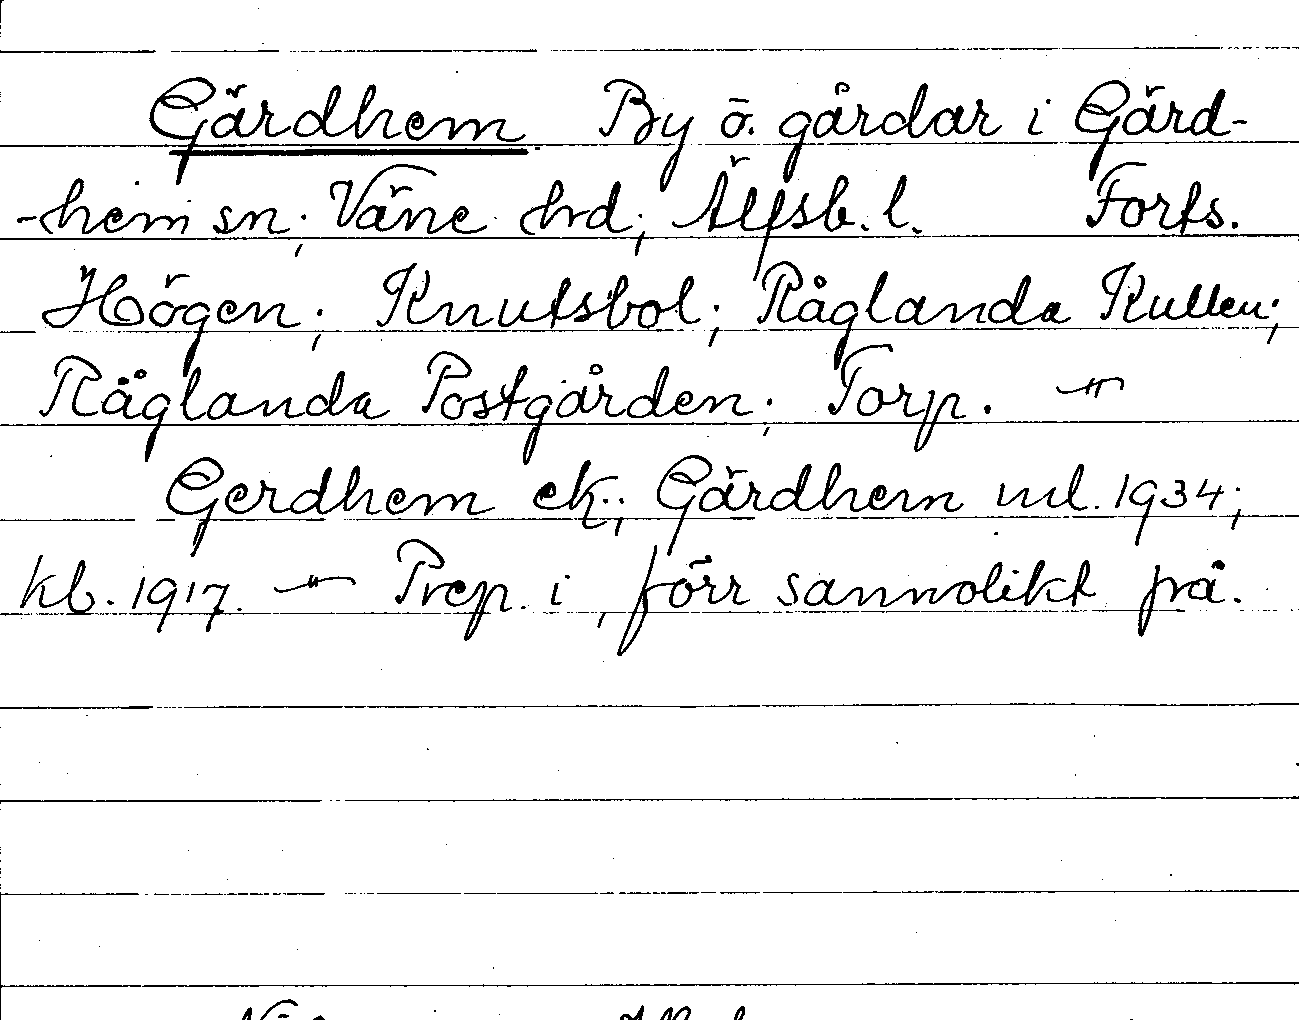 Gärdhem By o. gårdar i Gärd-
-hem sn; Väne hd; Älfsb. l. Forts.
Högen; Knutsbol; Råglanda Kullen;
Råglanda Postgården; Torp. —"—
Gerdhem ek.; Gärdhem ml. 1934;
kb. 1917. —"— Prep. i, förr sannolikt på.